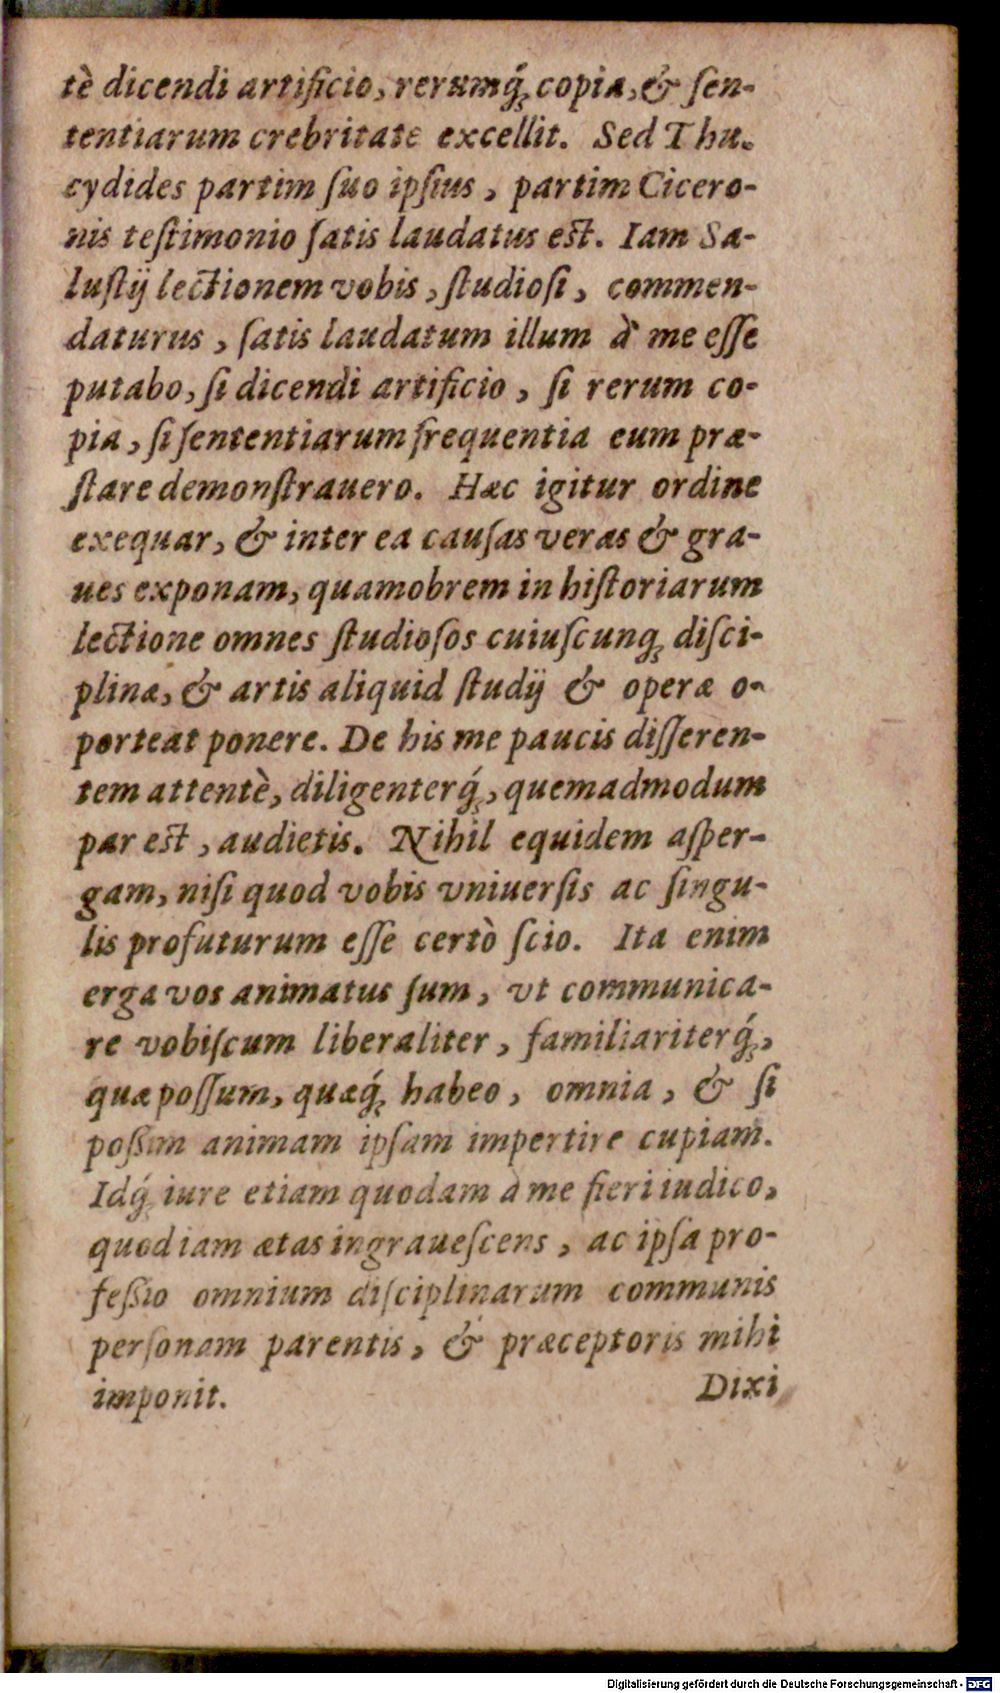 tè dicendi artificio, rerumq́ꝫ copia, & ſen-
tentiarum crebritate excellit. Sed Thu-
cydides partim ſuo ipſius, partim Cicero-
nis teſtimonio ſatis laudatus eſt. Iam Sa-
luſtij lectionem vobis, ſtudioſi, commen-
daturus, ſatis laudatum illum à me eſſe
putabo, ſi dicendi artificio, ſi rerum co-
pia, ſi ſententiarum frequentia eum præ-
ſtare demonſtrauero. Hæc igitur ordine
exequar, & inter ea cauſas veras & gra-
ues exponam, quamobrem in hiſtoriarum
lectione omnes ſtudioſos cuiuſcunqꝫ diſci-
plinæ, & artis aliquid ſtudij & operæ o-
porteat ponere. De his me paucis diſſeren-
tem attentè, diligenterq́ꝫ, quemadmodum
par eſt, audietis. Nihil equidem aſper-
gam, niſi quod vobis vniuerſis ac ſingu-
lis profuturum eſſe certò ſcio. Ita enim
erga vos animatus ſum, vt communica-
re vobiſcum liberaliter, familiariterq́ꝫ,
quæ poſſum, quæq́ꝫ habeo, omnia, & ſi
poßim animam ipſam impertire cupiam.
Idq́ꝫ iure etiam quodam à me fieri iudico,
quod iam ætas ingraueſcens, ac ipſa pro-
feßio omnium diſciplinarum communis
perſonam parentis, & præceptoris mihi
imponit. Dixi
Digitalisierung gefördert durch die Deutsche Forschungsgemeinschaft - DFG